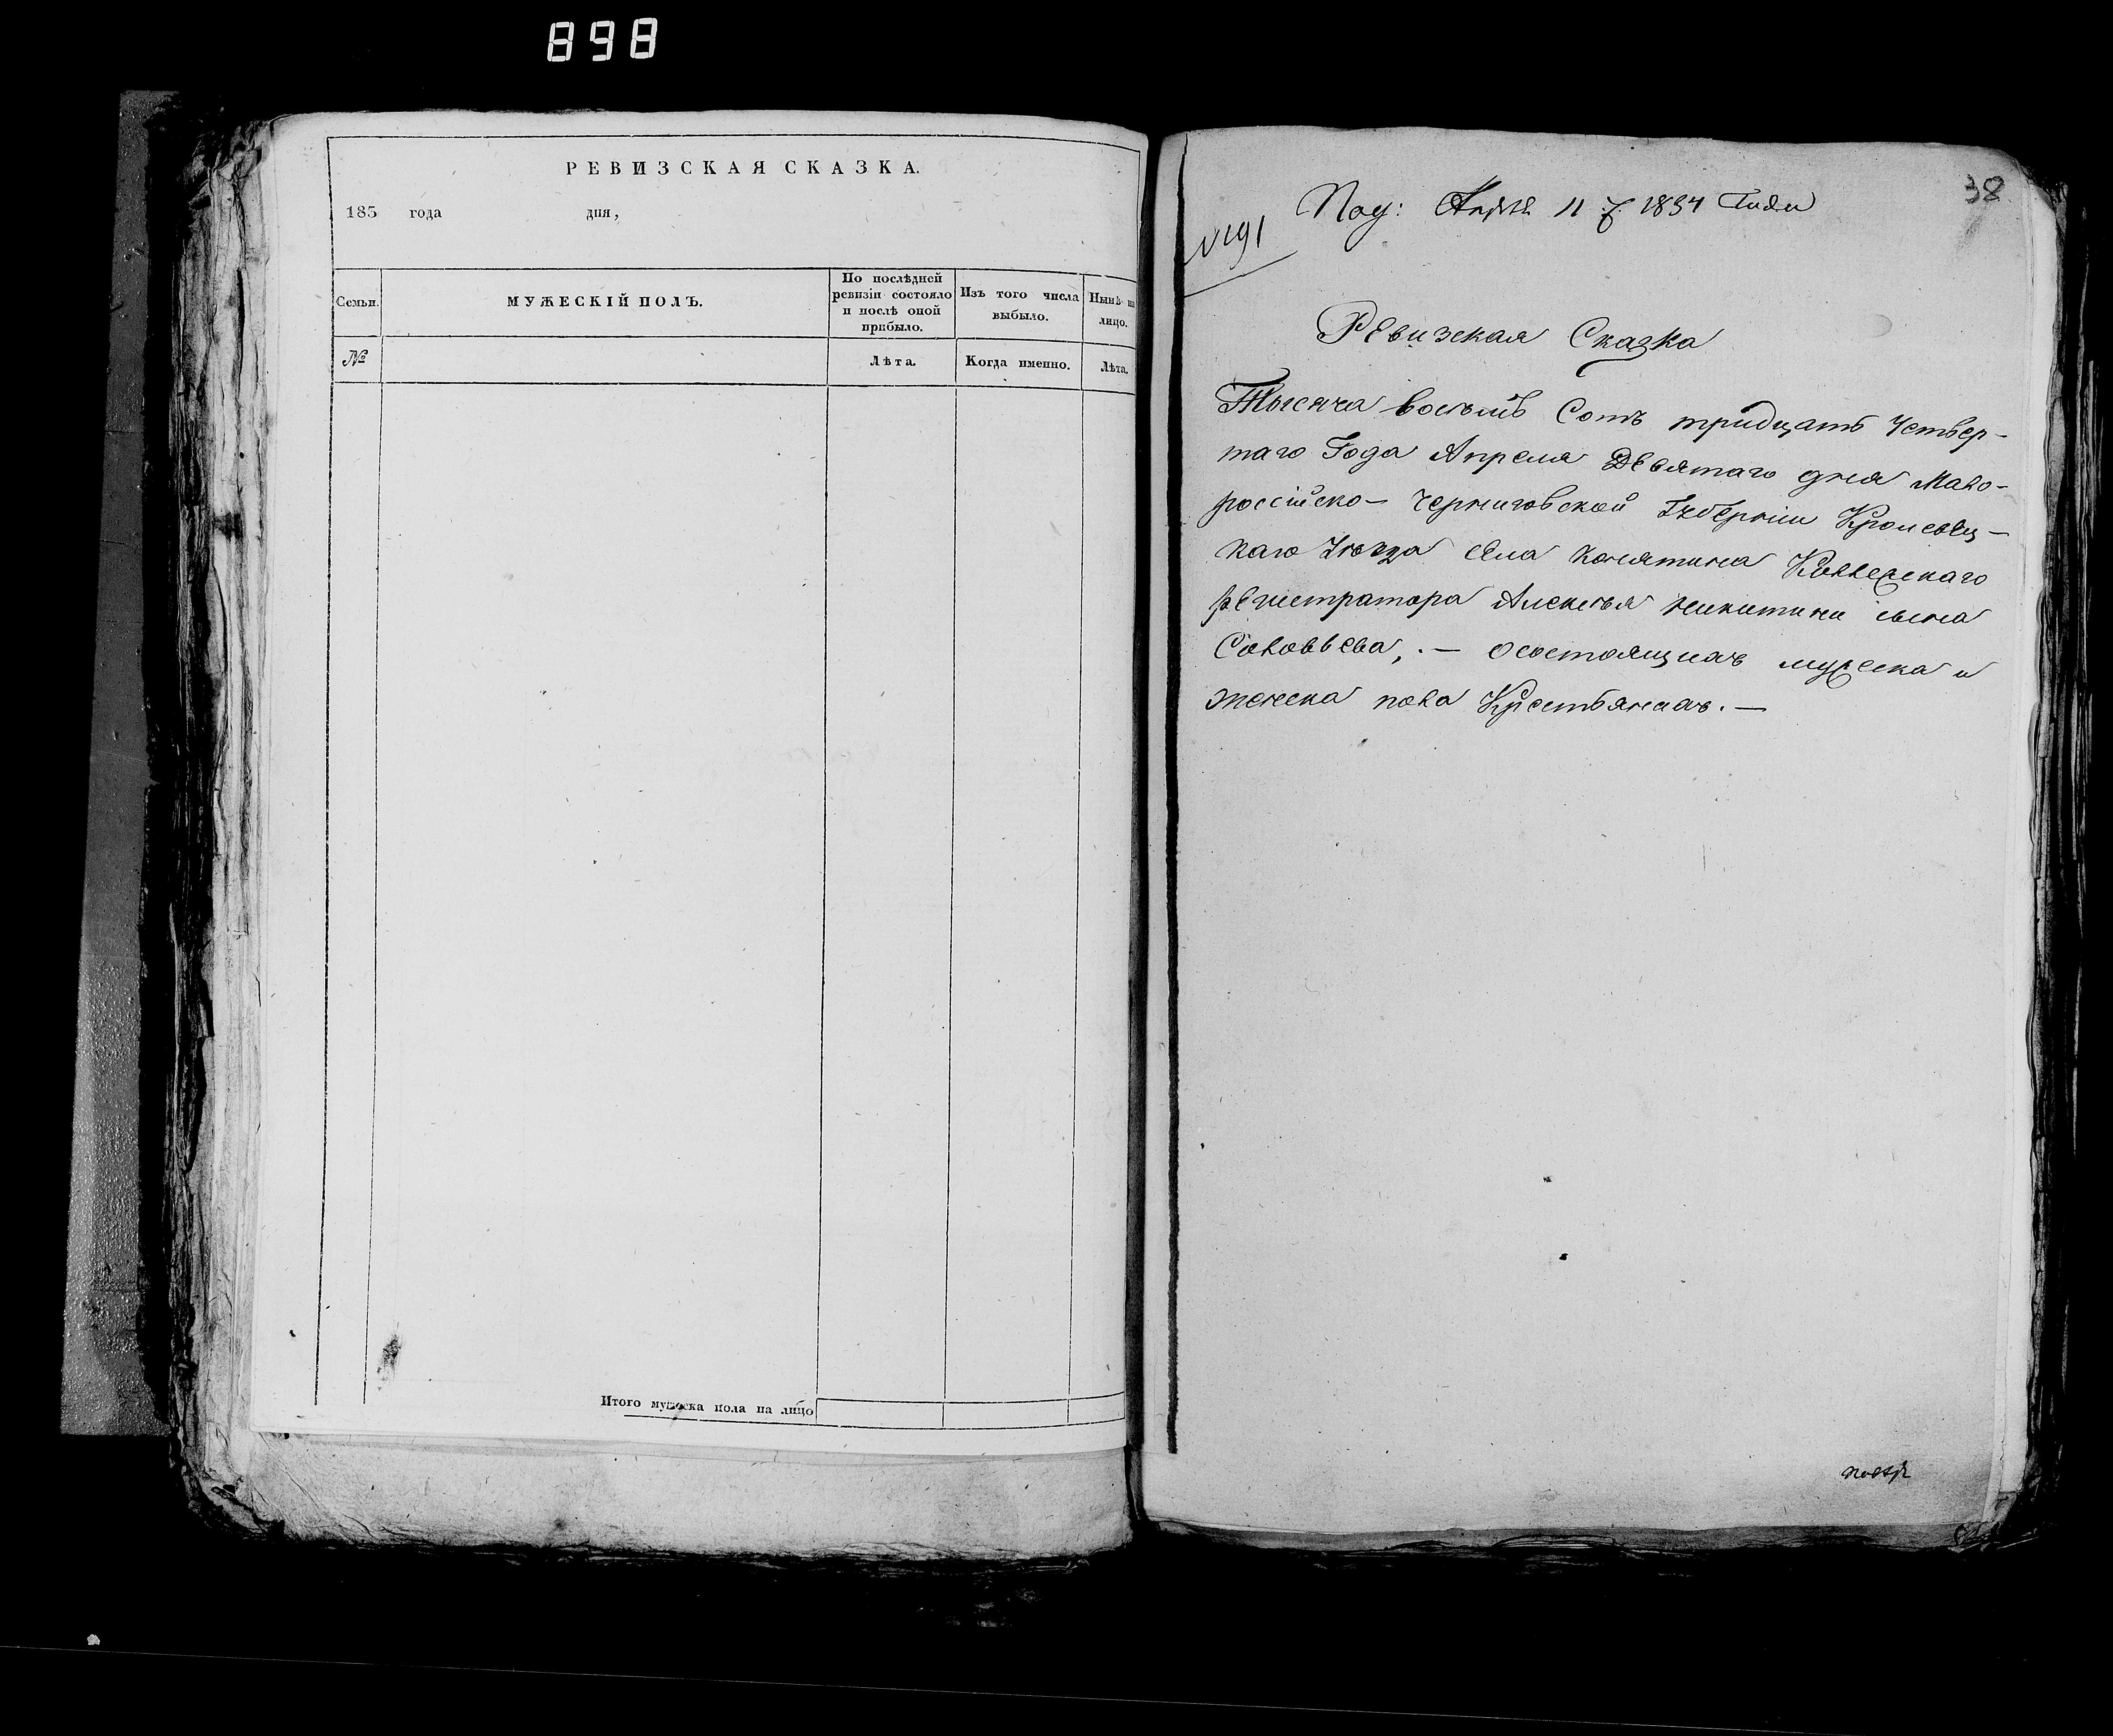 898
РЕВИЗСКАЯ СКАЗКА.
185 года дня,
Семьи.
МУЖЕСКІЙ ПОЛЪ.
По послѣдней
ревизіи состояло
и послѣ оной
прибыло.
Изъ того числа
выбыло.
Нынѣ на
лицо.
№
Лѣта.
Когда именно.
Лѣта.
Итого мужеска пола на лицо
38
Под: Апрѣл 11 д. 1834 Года
№191
Ревизская Сказка
Тысяча восѣмь Сотъ тридцать Четвер-
таго Года Апреля Девятаго дня Мало-
россійско-Черниговской Губерніи Кролевец-
каго Уѣзда села Конятина Коллежскаго
регистратора Алексѣя Никитина сына
Соловьева, .— осостоящихъ мужеска и
женска пола Крестьянахъ.—